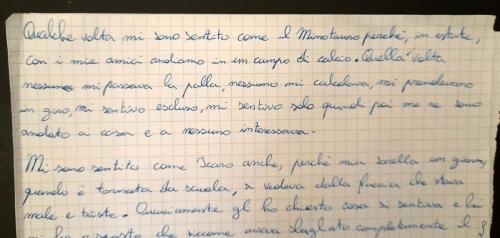 Qualche volta mi sono sentito come il Minotauro perché, in estate,
con i miei amici andiamo in un campo di calcio. Quella volta
nessuno mi passava la palla, nessuno mi calcolava, mi prendevano
in giro, mi sentivo escluso, mi sentivo solo quindi poi me ne sono
andato a casa e a nessuno interessava.
Mi sono sentito come Icaro anche, perché mia sorella un giorno,
quando è tornata da scuola, si vedeva dalla faccia che stava
male e triste. Ovviamente gl ho chiesto cosa si sentiva e lei
mi ha risposto che siccome aveva sbagliato completamente il